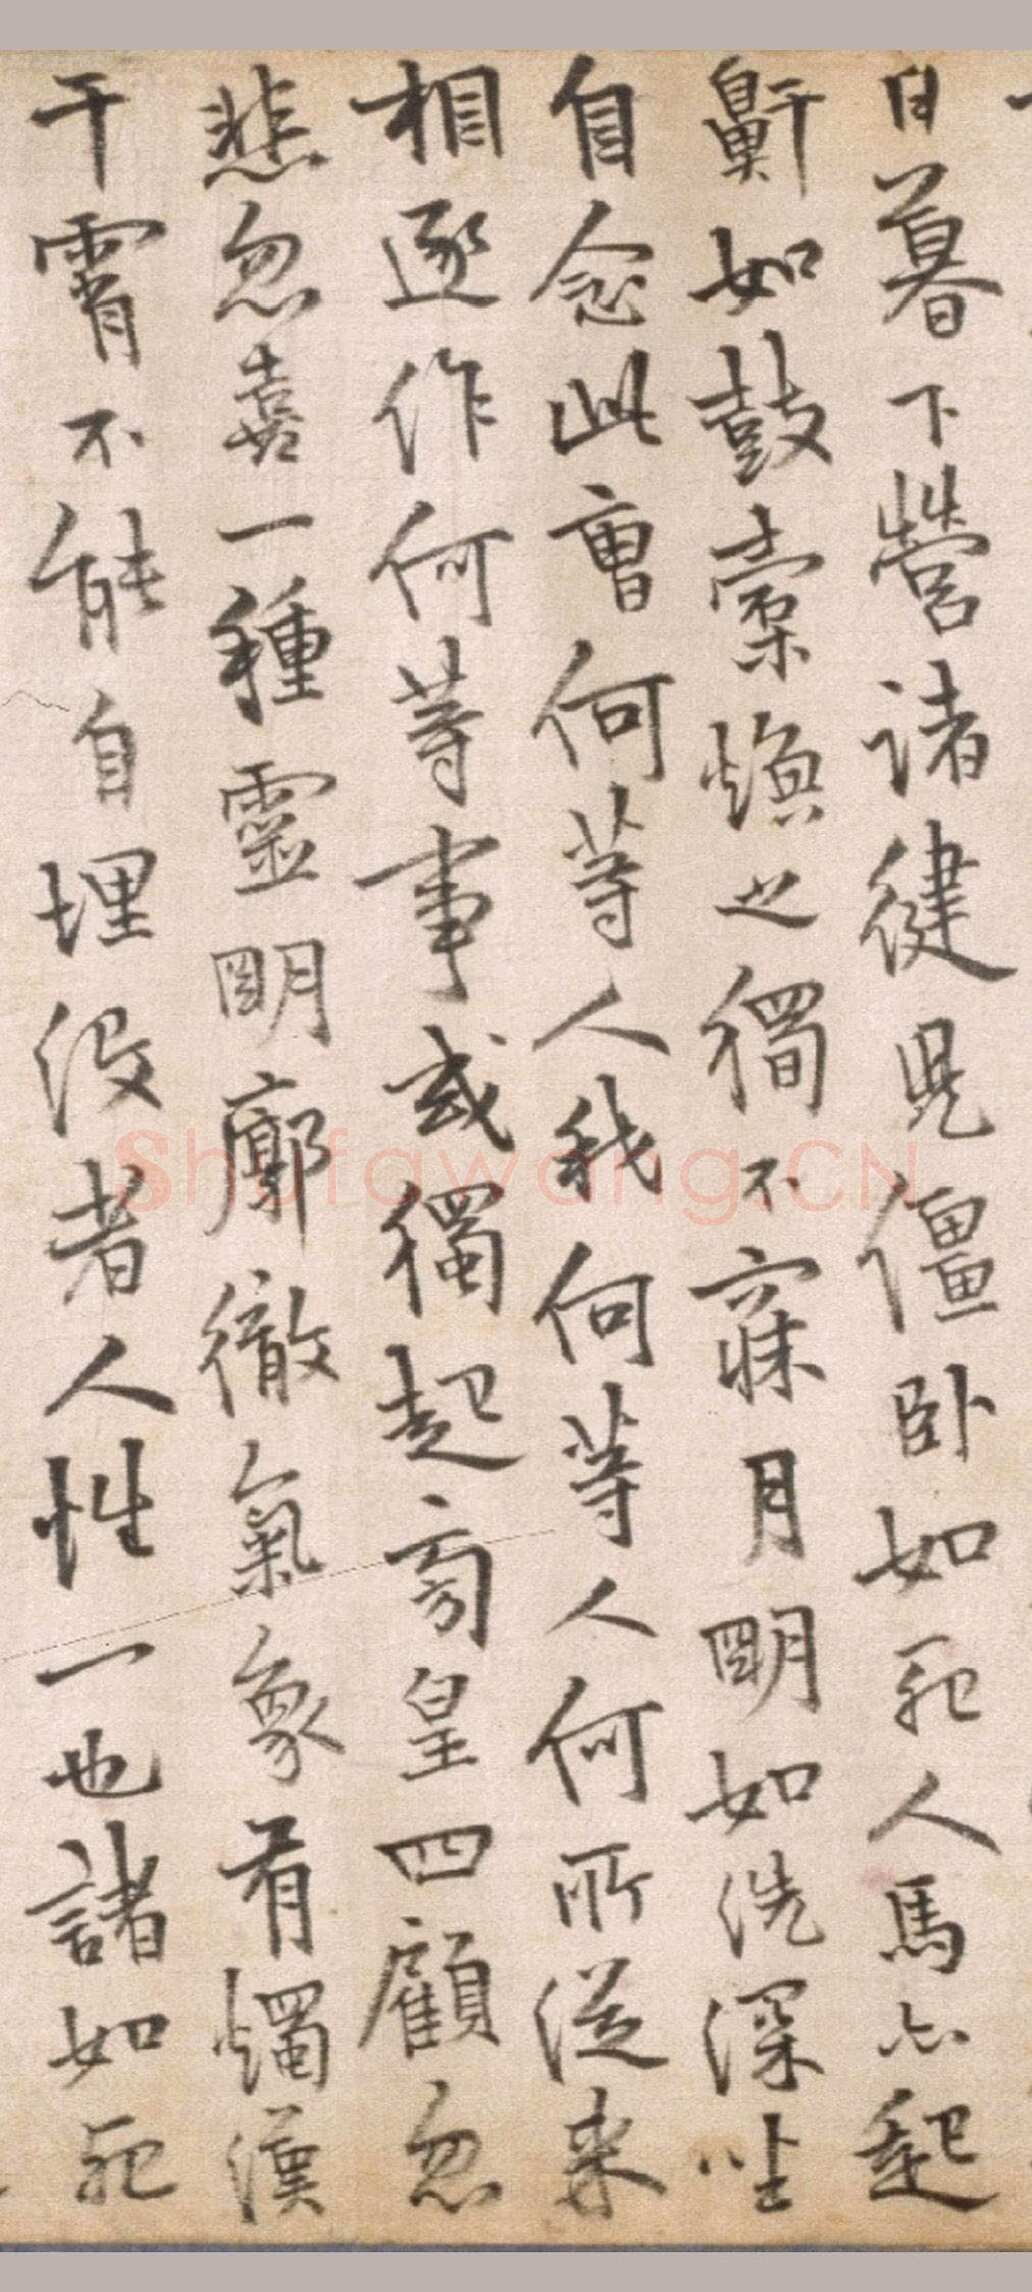 日暮下營諸健兒僵卧如死人馬亦起
鼾如鼓橐煥之獨不寐月明如洗深坐
自念此曹何等人我何等人何所從来
相逐作何等事或獨起旁皇四顧忽
悲忽喜一種靈明廓徹氣象有燭漢
干霄不能自埋没者人性一也諸如死
Shufawang.CN